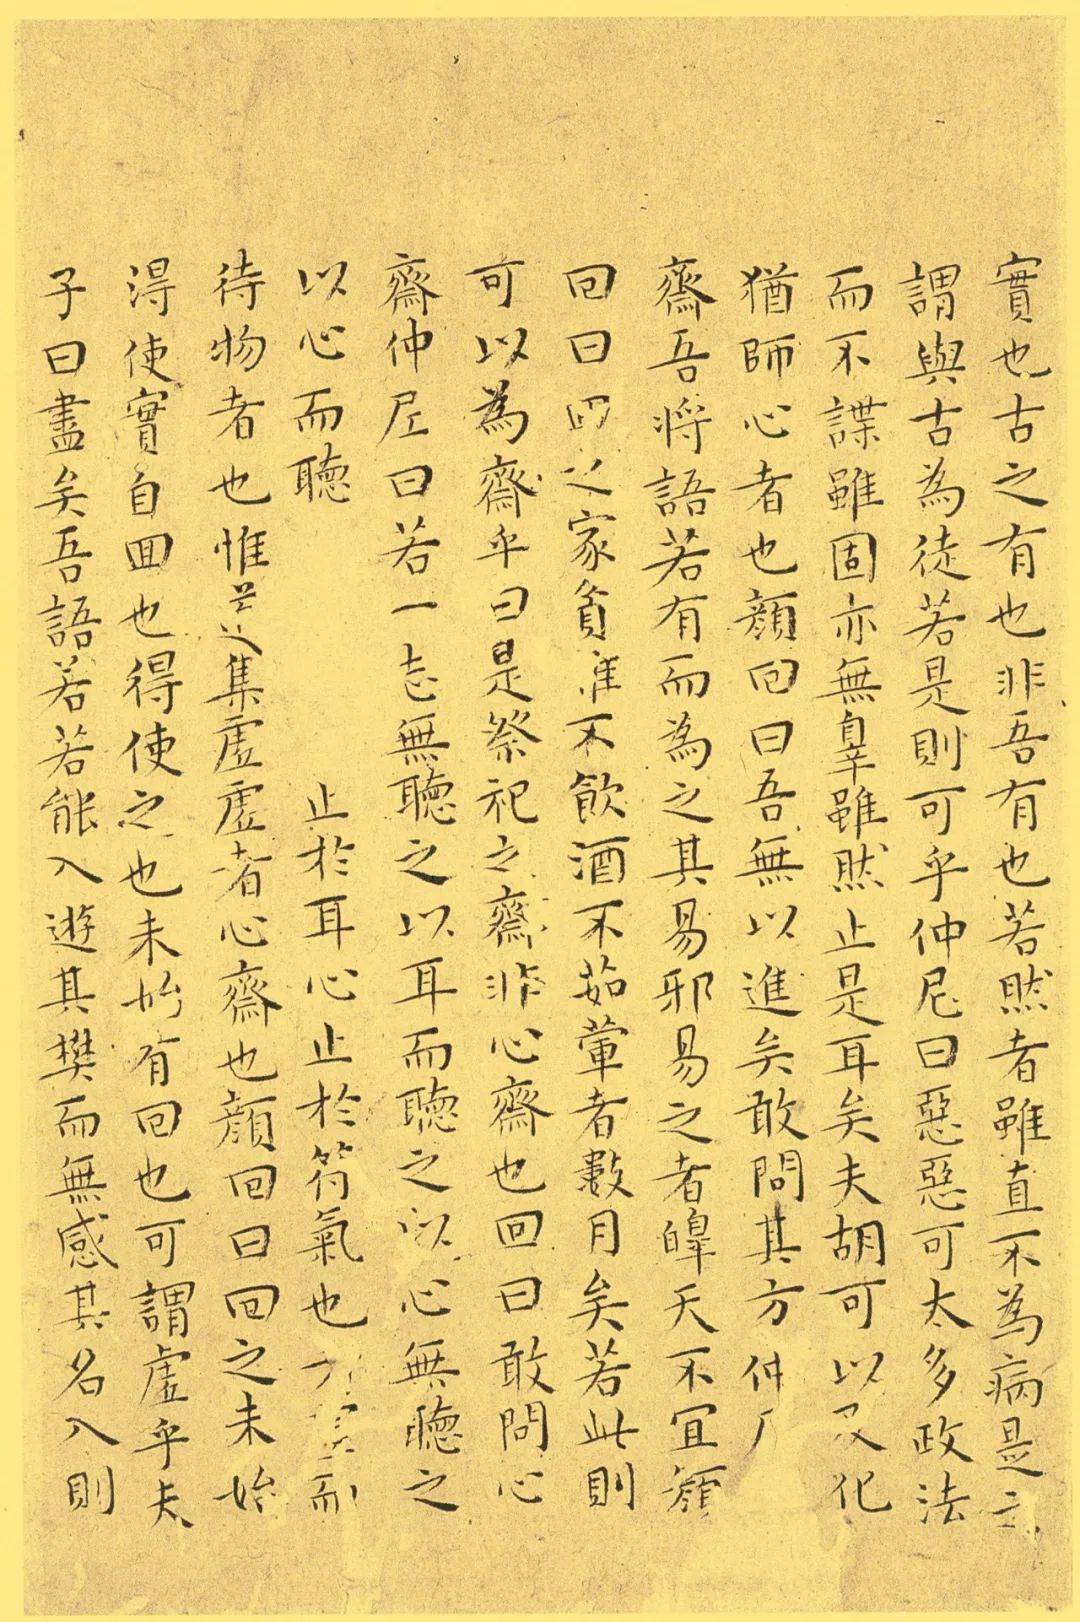 實也古之有也非吾有也若然者雖直不為病是之
謂與古為徒若是則可乎仲尼曰惡惡可太多政法
而不諜雖固亦無辠雖然止是耳矣夫胡可以及化
猶師心者也顏回曰吾無以進矣敢問其方仲尼
齋吾將語若有而為之其易邪易之者皞天不宜顏
回曰回之家貧唯不飲酒不茹葷者數月矣若此則
可以為齋乎曰是祭祀之齋非心齋也回曰敢問心
齋仲尼曰若一志無聽之以耳而聽之以心無聽之
以心而聽 止於耳心止於符氣也者虛而
待物者也惟道集虛虛者心齋也顏回曰回之未始
淂使實自回也得使之也未始有回也可謂虛乎夫
子曰盡矣吾語若若能入遊其樊而無感其名入則